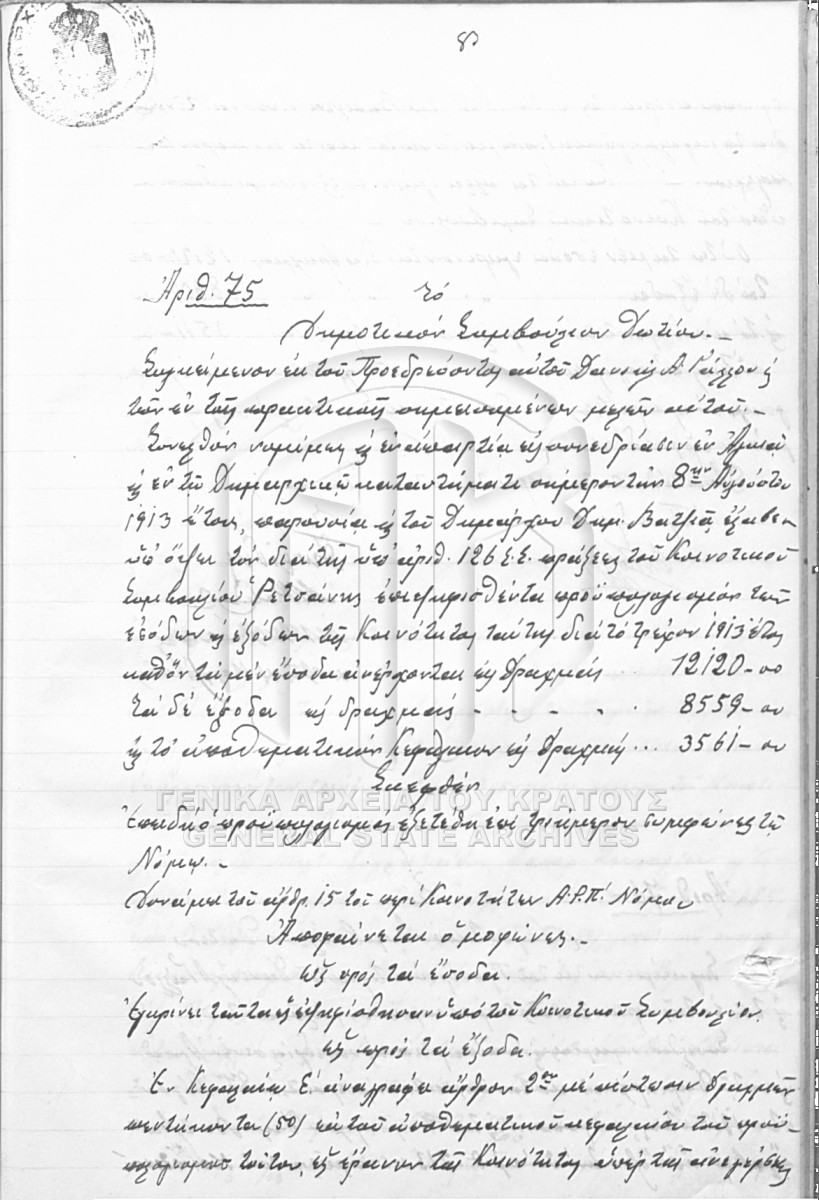 8
Ἀριθ. 75 Τό
Δημοτικόν Συμβούλιον Δωτίου.-
Συγκείμενον ἐκ τοῦ Προεδρεύοντος αὐτοῦ Δανιήλ Α. Γάλλου ϗ
τῶν ἐν τοῖς πρακτικοῖς σημειουμένων μελῶν αὐτοῦ.-
Συνελθόν νομίμως ϗ ἐν ἀπαρτίᾳ εἰς συνεδρίασιν ἐν Ἀγιᾷ
ϗ ἐν τῷ Δημαρχικῷ καταστήματι σήμερον τήν 8ην Αὐγούστου
1913 ἔτους, παρουσίᾳ ϗ τοῦ Δημάρχου Δημ. Βατζιᾶ ἔλαβεν
ὑπ' ὄψει τόν διά τῆς ὑπ' ἀριθ. 126 ἐ.ἔ. πράξεως τοῦ Κοινοτικοῦ
Συμβουλίου Ρετσάνης ἐπιψηφισθέντα προϋπολογισμόν τῶν
ἐσόδων ϗ ἐξόδων τῆς Κοινότητος ταύτης διά τό τρέχον 1913 ἔτος
καθ' ὅν τά μέν ἔσοδα ἀνέρχονται εἰς Δραχμάς .. 12120-00
τά δέ ἔξοδα εἰς δραχμάς - - - - . 8559-00
ϗ τό ἀποθεματικόν Κεφάλαιον εἰς Δραχμάς ... 3561-00
Σκεφθέν
Ἐπειδή ὁ προϋπολογισμός ἐξετέθη ἐπί τριήμερον συμφώνως τῷ
Νόμῳ.-
Δυνάμει τοῦ ἄρθρ. 15 τοῦ περί Κοινοτήτων Δ.Ρ.Π΄. Νόμου
Ἀποφαίνεται ὁμοφώνως.-
Ὡς πρός τά ἔσοδα.
Ἐγκρίνει ταῦτα ὡς ἐψηφίσθησαν ὑπό τοῦ Κοινοτικοῦ Συμβουλίου.
Ὡς πρός τά ἔξοδα.
Ἐν Κεφαλαίῳ Ε΄. ἀναγράφει ἄρθρον 2ον μέ πίστωσιν δραχμῶν
πεντήκοντα (50) ἐκ τοῦ ἀποθεματικοῦ κεφαλαίου τοῦ προϋ-
πολογισμοῦ τούτου, ὡς ἔρανον τῆς Κοινότητος ὑπέρ τῆς ἀνεγέρσεως
ΓΕΝΙΚΑ ΑΡΧΕΙΑ ΤΟΥ ΚΡΑΤΟΥΣ
GENERAL STATE ARCHIVES